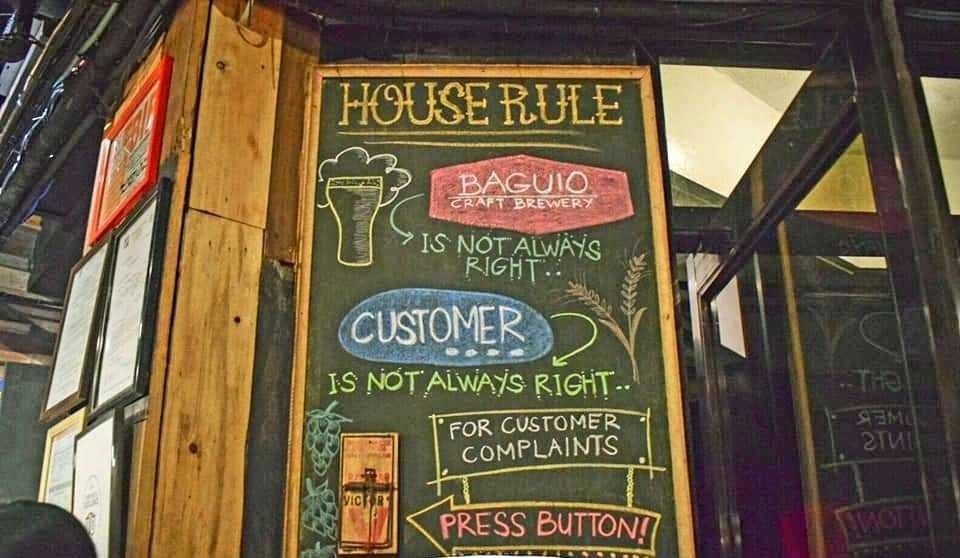 HOUSE RULE
BAGUIO
CRAFT BREWERY
IS NOT ALWAYS
RIGHT..
CUSTOMER
IS NOT ALWAYS RIGHT..
FOR CUSTOMER
COMPLAINTS
VICTOR
PRESS BUTTON!